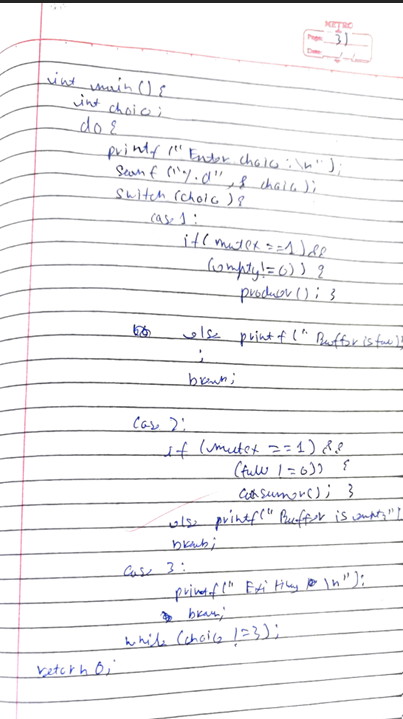 METRO
Page: 31
Date: / /
int main() {
int choice;
do {
printf ("Enter choice: \n");
scanf ("%d", & choice);
switch (choice) {
case 1:
if( mutex == 1) &&
(empty != 0)) {
producer(); }
else printf (" Buffer is full
;
break;
case 2:
if (mutex == 1) &&
(full != 0)) {
consumer(); }
else printf(" Buffer is empty")
break;
case 3:
printf (" Exiting \n");
break;
while (choice != 3);
return 0;